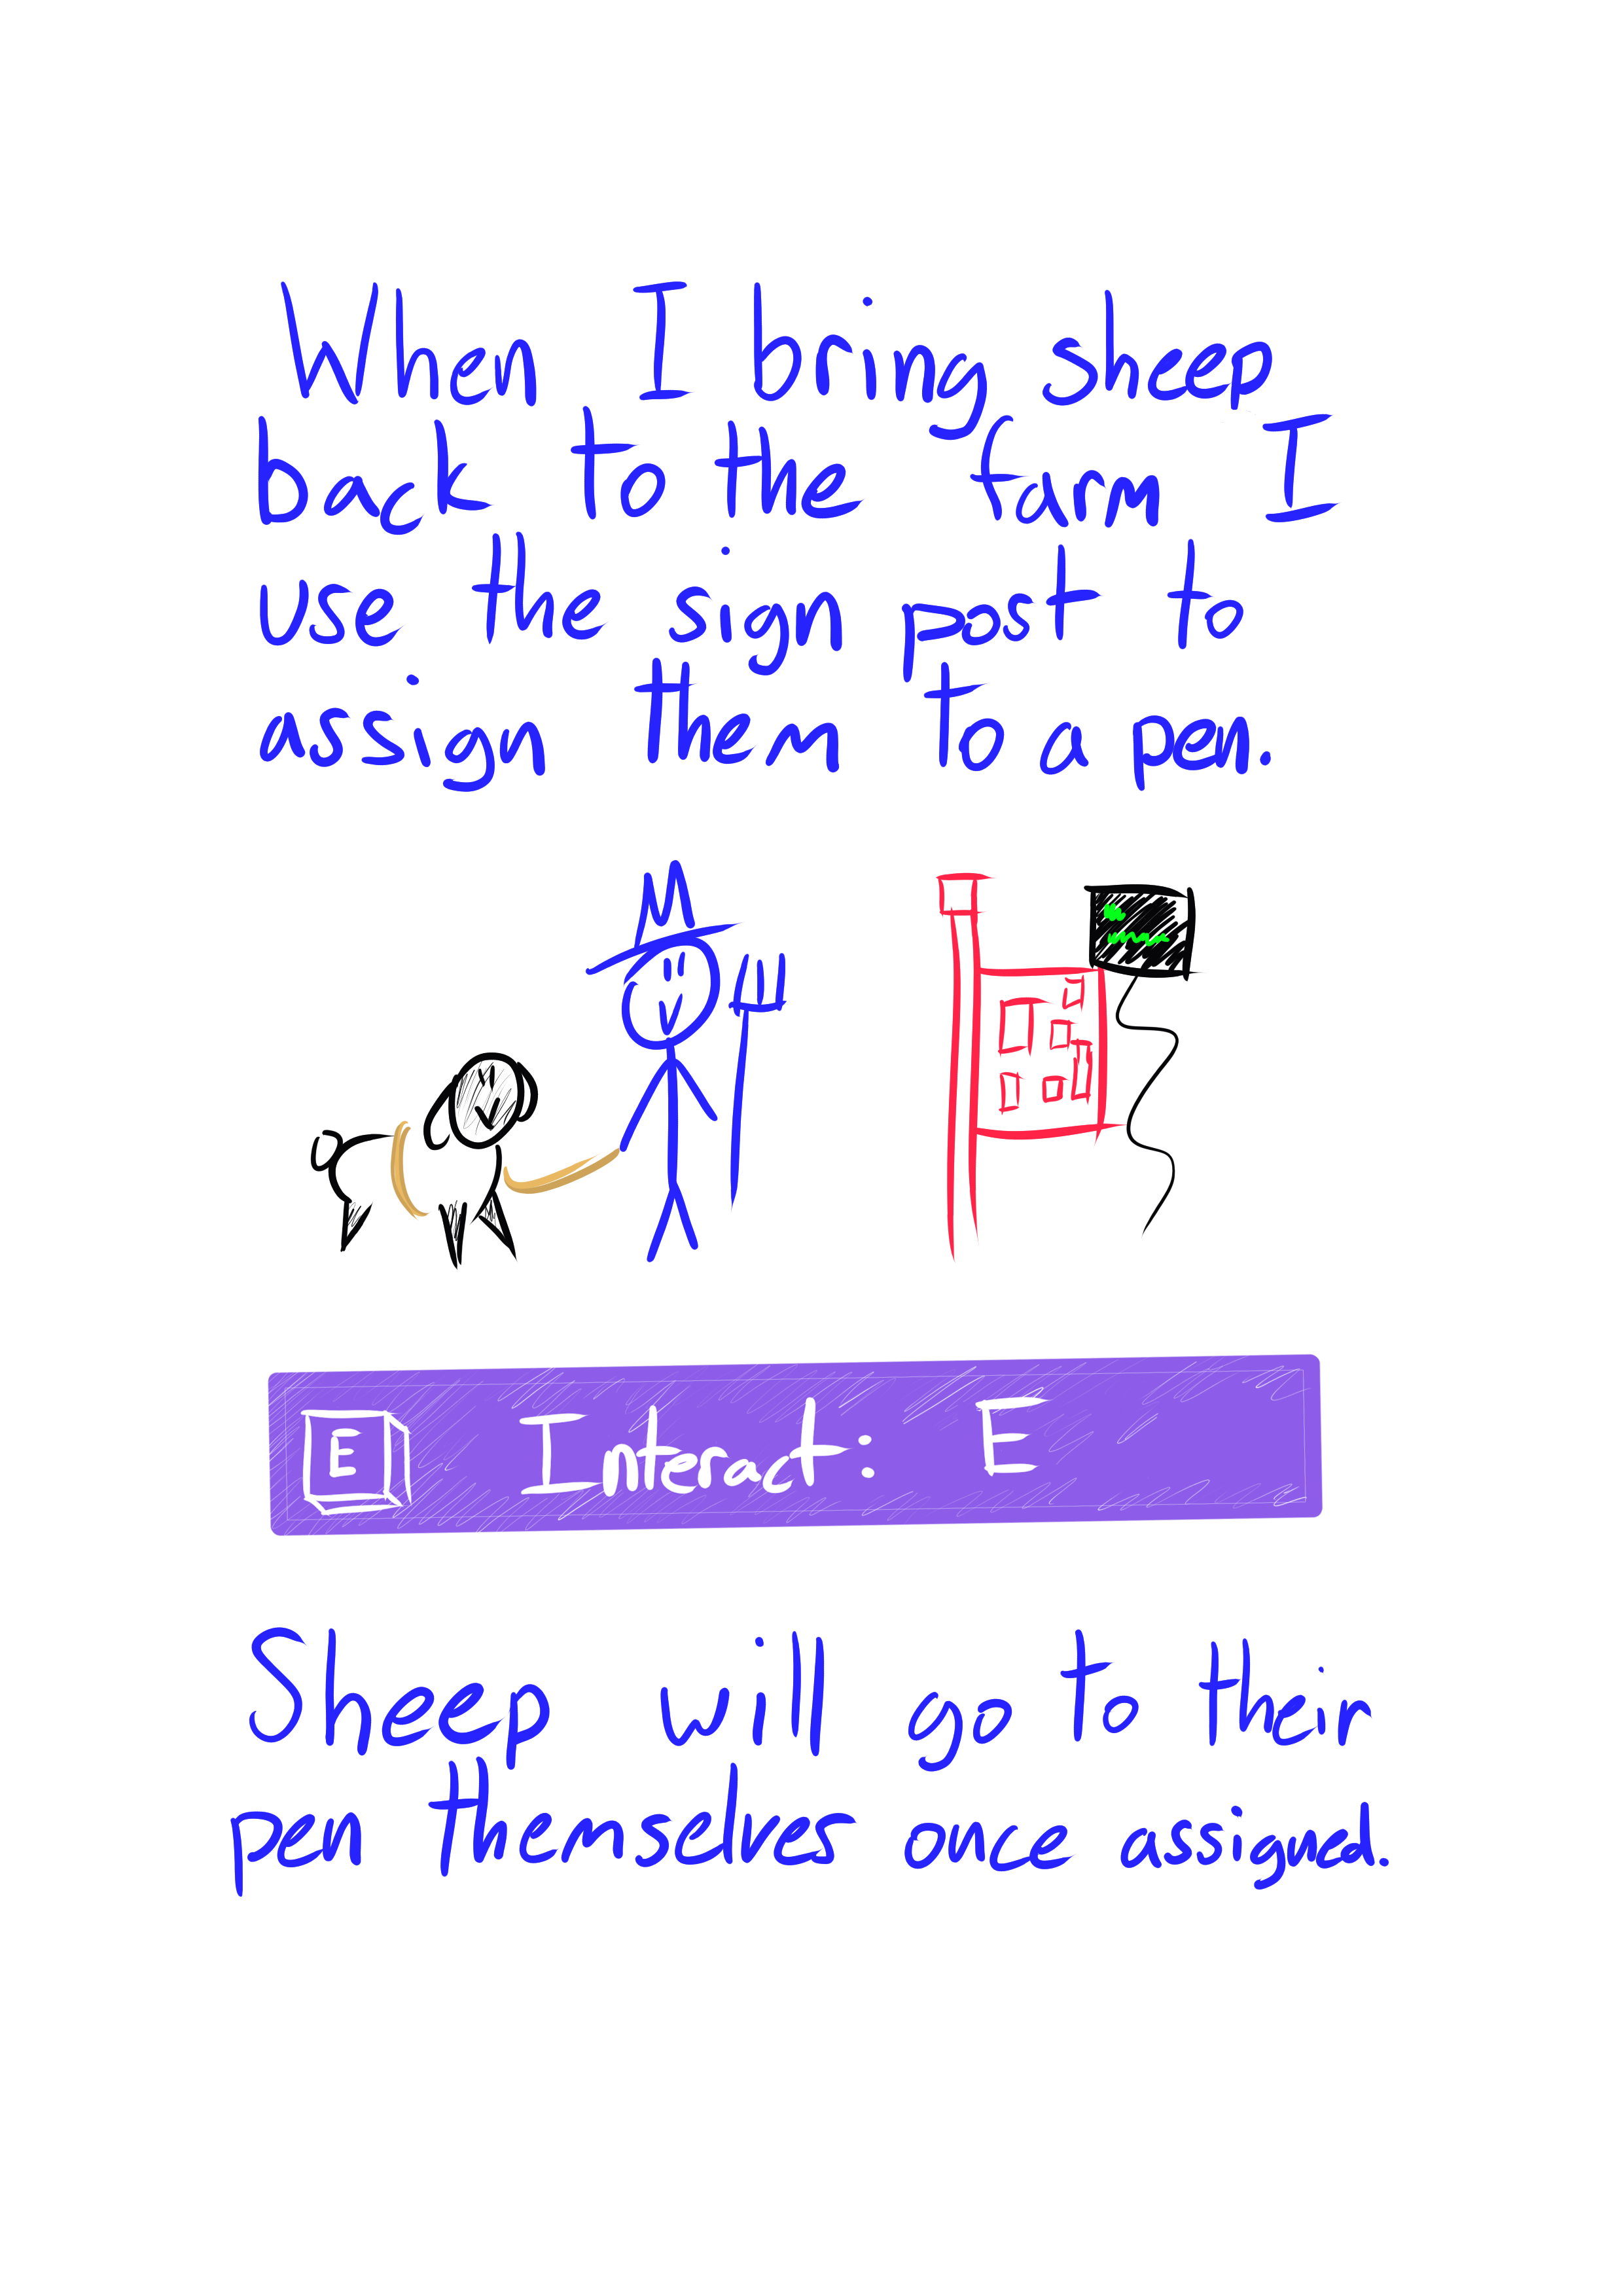 When I bring sheep
back to the farm I
use the sign post to
assign them to a pen.
E Interact: E
Sheep will go to their
pen themselves once assigned.